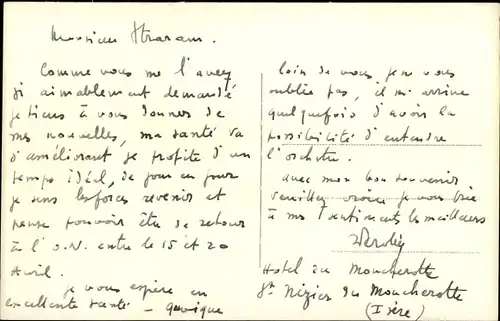 Monsieur Straram.
Comme vous me l'avez
si aimablement demandé
je tiens à vous donner de
mes nouvelles, ma santé va
s'améliorant je profite d'un
temps idéal, de jour en jour
je sens les forces revenir et
pense pouvoir être de retour
à l'O.N. entre le 15 et 20
Avril.
je vous espère en
excellente santé - quoique
loin de vous, je ne vous
oublie pas, il m'arrive
quelquefois d'avoir la
possibilité d'entendre
l'orchestre.
avec mon bon souvenir
veuillez croire je vous prie
à mes sentiments les meilleurs
Hotel du Moucherotte
St Nizier du Moucherotte
(Isère)